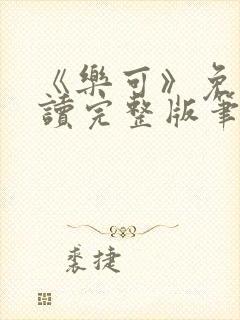 《樂可》免
讀完整版筆
裘捷